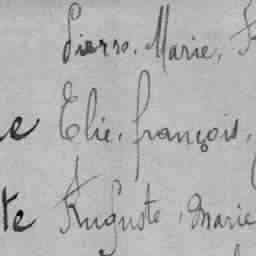 Pierre, Marie, F
e Elie, françois,
te Auguste, Marie